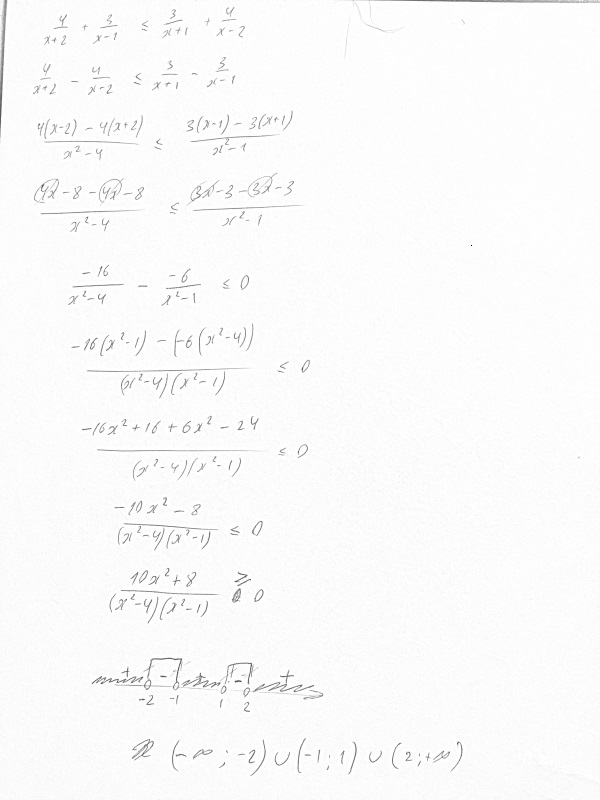 4/(x+2) + 3/(x-1) ≤ 3/(x+1) + 4/(x-2)
4/(x+2) - 4/(x-2) ≤ 3/(x+1) - 3/(x-1)
(4(x-2) - 4(x+2))/(x²-4) ≤ (3(x-1) - 3(x+1))/(x²-1)
(4x - 8 - 4x - 8)/(x²-4) ≤ (3x - 3 - 3x - 3)/(x²-1)
-16/(x²-4) - -6/(x²-1) ≤ 0
(-16(x²-1) - (-6(x²-4)))/((x²-4)(x²-1)) ≤ 0
(-16x² + 16 + 6x² - 24)/((x²-4)(x²-1)) ≤ 0
(-10x² - 8)/((x²-4)(x²-1)) ≤ 0
(10x² + 8)/((x²-4)(x²-1)) ≥ 0
+ - + - +
-2 -1 1 2
(-∞; -2) ∪ (-1; 1) ∪ (2; +∞)